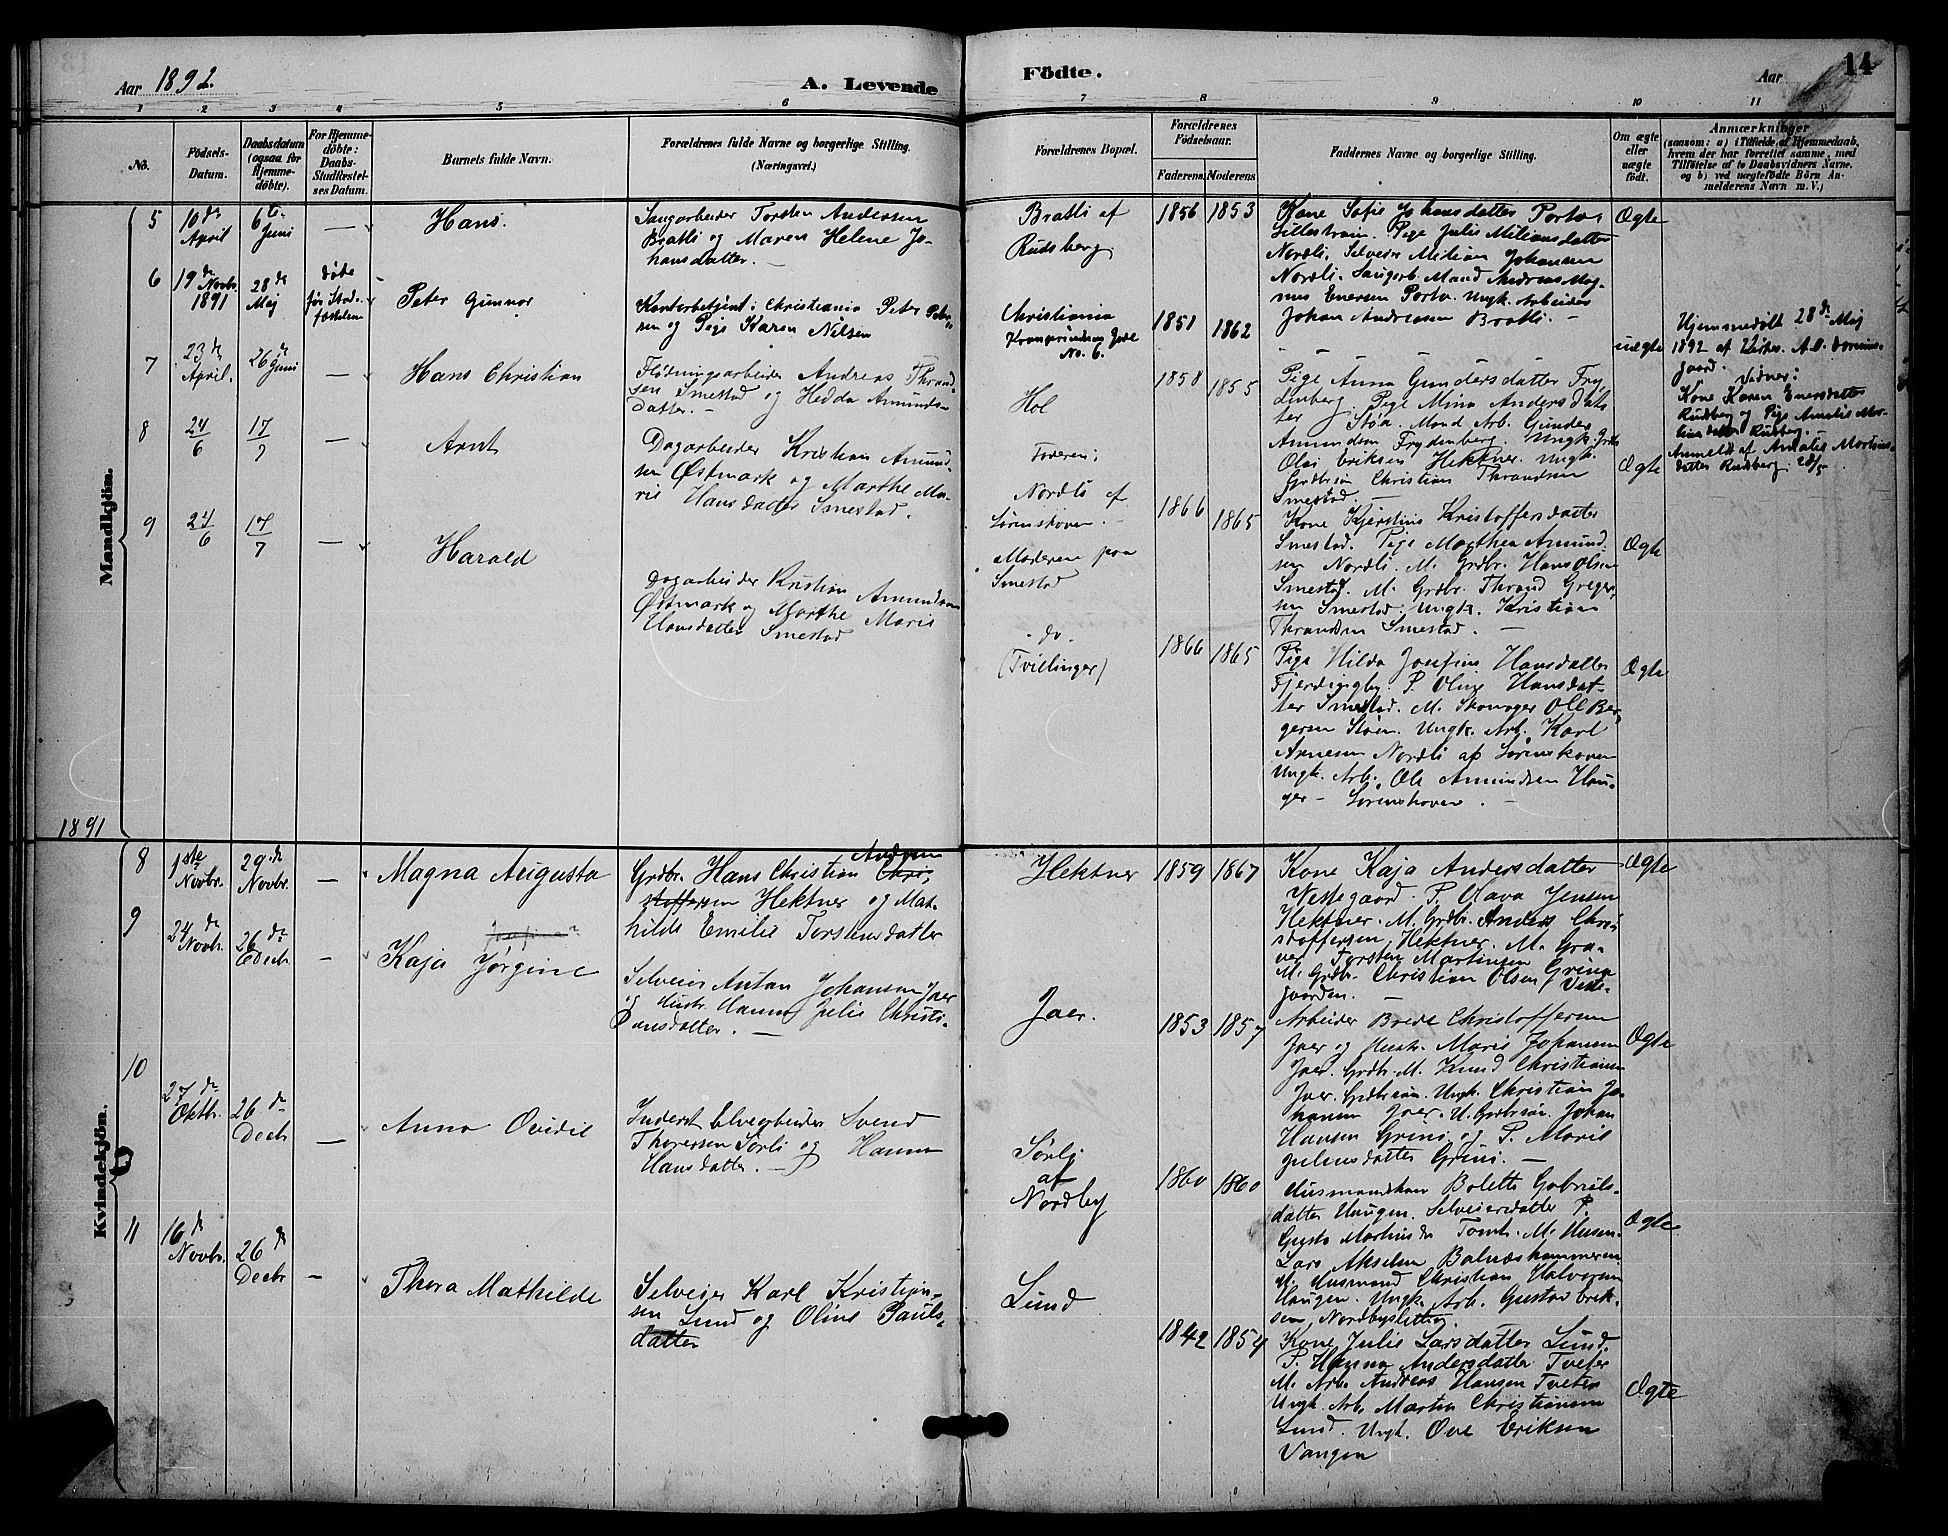 Aar 1892.
A. Levende
Födte.
Aar
14
1 2 3 4 5 6 7 8 9 10 11
No.
Födsels-Datum.
Daabsdatum (ogsaa for Hjemmedöbte).
For Hjemmedöbte: Daabs-Stadfæstelses Datum.
Barnets fulde Navn.
Forældrenes fulde Navne og borgerlige Stilling. (Næringsvei.)
Forældrenes Bopæl.
Forældrenes Födselsaar.
Faderens
Moderens
Faddernes Navne og borgerlige Stilling.
Om ægte eller uægte födt.
Anmærkninger
(saasom: a) i Tilfælde af Hjemmedaab, hvem der har forrettet samme, med Tilföielse af to Daabsvidners Navne, og b) ved uægtefödte Börn Anmelderens Navn m. V.)
Mandkjön.
5
10de April
6te Juni
—
Hans.
Saugarbeider Torsten Andersen
Bratli og Maren Helene Jo-
hansdatter. —
Bratli af
Rudsberg
1856
1853
Kone Sofie Johansdatter Porto
Lillestrøm. Pige Julie Miliansdatter
Nordli. Selveier Milian Johansen
Nordli. Saugarb. Mand Andreas Mag-
nus Enersen Porto. Ungk. Arbeider
Johan Andreasen Bratli. —
Ægte
6
19de Novbr. 1891
28de Maj
døde før Stadfæstelsen
Peter Gunnar
Kontorbetjent i Christiania Peter Peter-
sen og Pige Karen Nilsen
Christiania
No. 6.
1851
1862
— — —
uægte
Hjemmedøbt 28de Maj
1892 af Kirkes. A. O.
gaard.
Vidner:
Kone Karen Enersdatter
Rudsberg og Pige Amalie Mar-
tinsdatter Rudberg. —
Anmeldt af Amalie Martins-
datter Rudberg. 28/5
7
23de April.
26de Juni
—
Hans Christian
Fløtningsarbeider Andreas Thrand-
sen Smestad og Hedda Amunds-
datter. —
Hol
1858
1855
Pige Anna Gundersdatter Fry-
denberg. Pige Mina Andersdat-
ter Støa. Mand Arb. Gunder
Amundsen Frydenberg. Ungk. Grdbr.
Olai Eriksen Hektner. Ungk.
Grdbrsøn Christian Thrandsen
Smestad. —
Ægte
8
24/6
17/7
—
Arnt
Dagarbeider Kristian Amund-
sen Østmark og Marthe Ma-
rie Hansdatter Smestad.
Faderen:
Nordli af
Sørenskoven. —
Moderen paa
Smestad
1866
1865
Kone Kjerstine Kristoffersdatter
Smestad. Pige Marthea Amund-
sen Nordli. M. Grdbr. Hans Olsen
Smestad. M. Grdbr. Thrand Greger-
sen Smestad. Ungk. Kristian
Thrandsen Smestad. —
Ægte
9
24/6
17/7
—
Harald
Dagarbeider Kristian Amundsen
Østmark og Marthe Marie
Hansdatter Smestad
- do -
(Tvillinger)
1866
1865
Pige Hilda Josefine Hansdatter
Fjerdingby. P. Oline Hansdat-
ter Smestad. M. Skomager Ole Ber-
gersen Støen. Ungk. Arb. Karl
Arnesen Nordli af Sørenskoven
Ungk. Arb. Ole Amundsen Hau-
ger — Sørenskoven. —
Ægte
1891
Kvindekjön.
8
1ste Novbr.
29de Novbr.
—
Magna Augusta
Andersen
Grdbr. Hans Christian Chri-
stoffersen Hektner og Mat-
hilde Emilie Torstensdatter
Hektner
1859
1867
Kone Kaja Andersdatter
Vestegaard. P. Olava Jensen
Hektner. M. Grdbr. Anders Chri-
stoffersen Hektner. M. Gra-
ver Torsten Martinsen
M. Grdbr. Christian Olsen Grina Veste-
gaarden. —
Ægte
9
24de Novbr.
26de Decbr.
—
Josefine
Kaja Jørgine
Selveier Anton Johansen Jaer
og Hustr. Hanna Julie Christi-
ansdatter. —
Jaer.
1853
1857
Arbeider Brede Christoffersen
Jaer og Hustr. Marie Johansen
Jaer. Grdbr. M. Knud Christiansen
Jaer. Grdbrsøn Ungk. Christian Jo-
hansen Jaer. U. Grdbrsøn. Johan
Hansen Grini og P. Marie
Julensdatter Grini. —
Ægte
10
27de Oktbr.
26de Decbr
—
Anna Ovidie
Inderst Elvearbeider Svend
Thoresen Sørli og Hanna
Hansdatter. —
Sørli
af
Nordby
1860
1860
Husmandskone Bolette Gabriels-
datter Haugen. Selveierdatter P.
Gusta Martinsdr Tomt. M. Husm.
Lars Akselsen Balnæshammeren
M. Husmand Christian Halvorsen
Haugen. Ungk. Arb. Gustav Erik-
sen Nordbysletten
Ægte
11
16de Novbr.
26de Decbr
—
Thora Mathilde
Selveier Karl Kristian-
sen Lund og Oline Pauls-
datter
Lund
1842
1854
Kone Julie Larsdatter Lund.
P. Hanna Andersdatter Tveter
M. Arb. Andreas Hansen Tveter
Ungk. Arb. Martin Christiansen
Lund. Ungk. Ove Eriksen
Vangen
Ægte